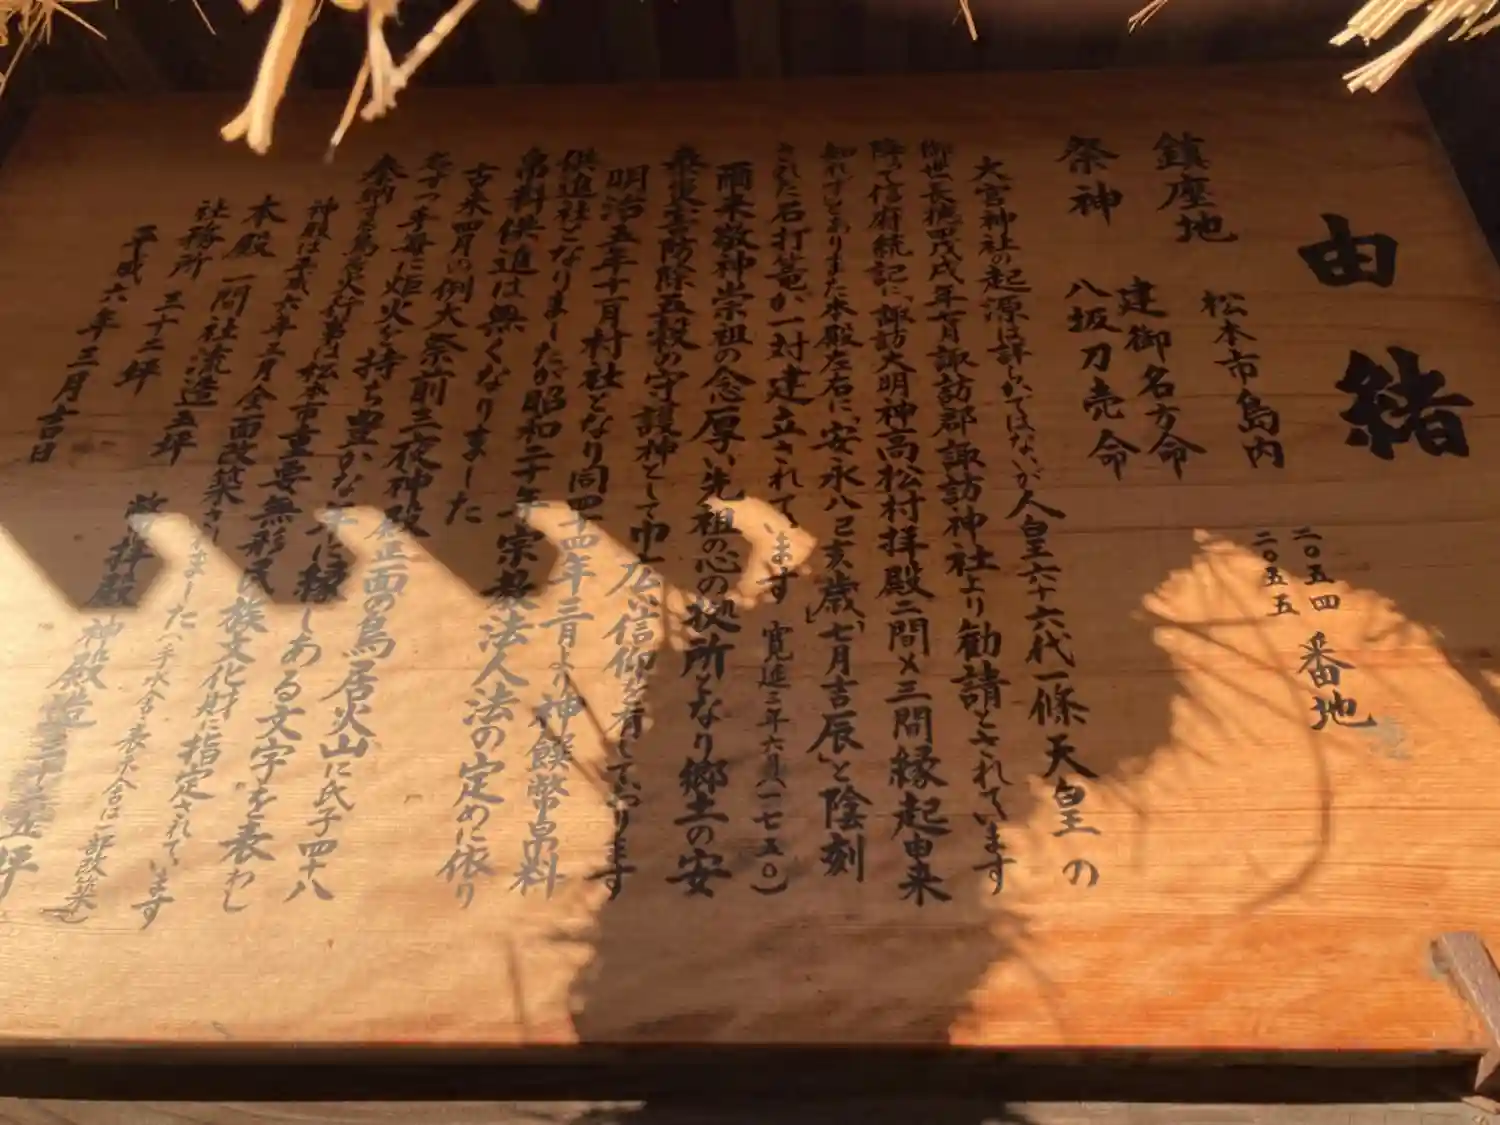 由緒
鎮座地 松本市島内 二〇五四 二〇五五 番地
祭神 建御名方命
八坂刀売命
大宮神社の起源は詳らかではないが人皇六十六代一條天皇の
御世長徳四戊戌年七月諏訪郡諏訪神社より勧請とされています
降って信府統記に、「諏訪大明神高松村拝殿二間×三間縁起由来
知れず」とありまた本殿左右に、「安永八己亥歳」、「七月吉辰」と陰刻
された石打篭が一対建立されています 寛延三年六月(一七五〇)
爾来敬神崇祖の念厚い先祖の心の拠所となり郷土の安
泰災害防除五穀の守護神として巾広い信仰を有しております
明治五年十一月村社となり同四十四年三月より神饌幣帛料
供進社となりましたが昭和二十年宗教法人法の定めに依り
帛料供進は無くなりました
古来四月の例大祭前三夜神殿正面の鳥居火山に氏子四十八
名ずつ手毎に炬火を持ち豊かな年に縁しある文字を表わし
奉納する鳥居火行事は松本市重要無形民族文化財に指定されています
神殿は平成六年三月全面改築されました(手水舎・表天舎は一部改築)
本殿 一間社流造 五坪 神殿造 三十五坪
社務所 三十二坪 拝殿
平成六年三月吉日